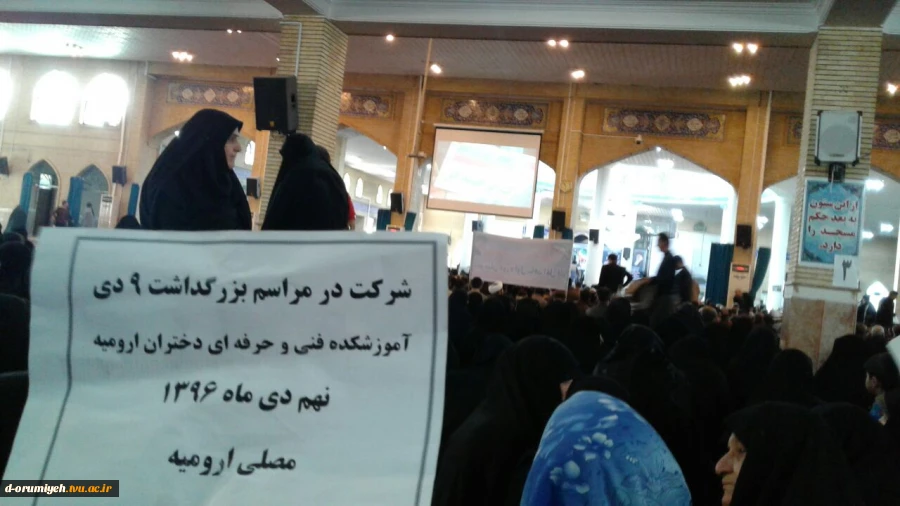 شرکت در مراسم بزرگداشت ۹ دی
آموزشکده فنی و حرفه ای دختران ارومیه
نهم دی ماه ۱۳۹۶
مصلی ارومیه
از این ستون
به بعد حکم
مسجد را
دارد.
۳
d-orumiyeh.tvu.ac.ir